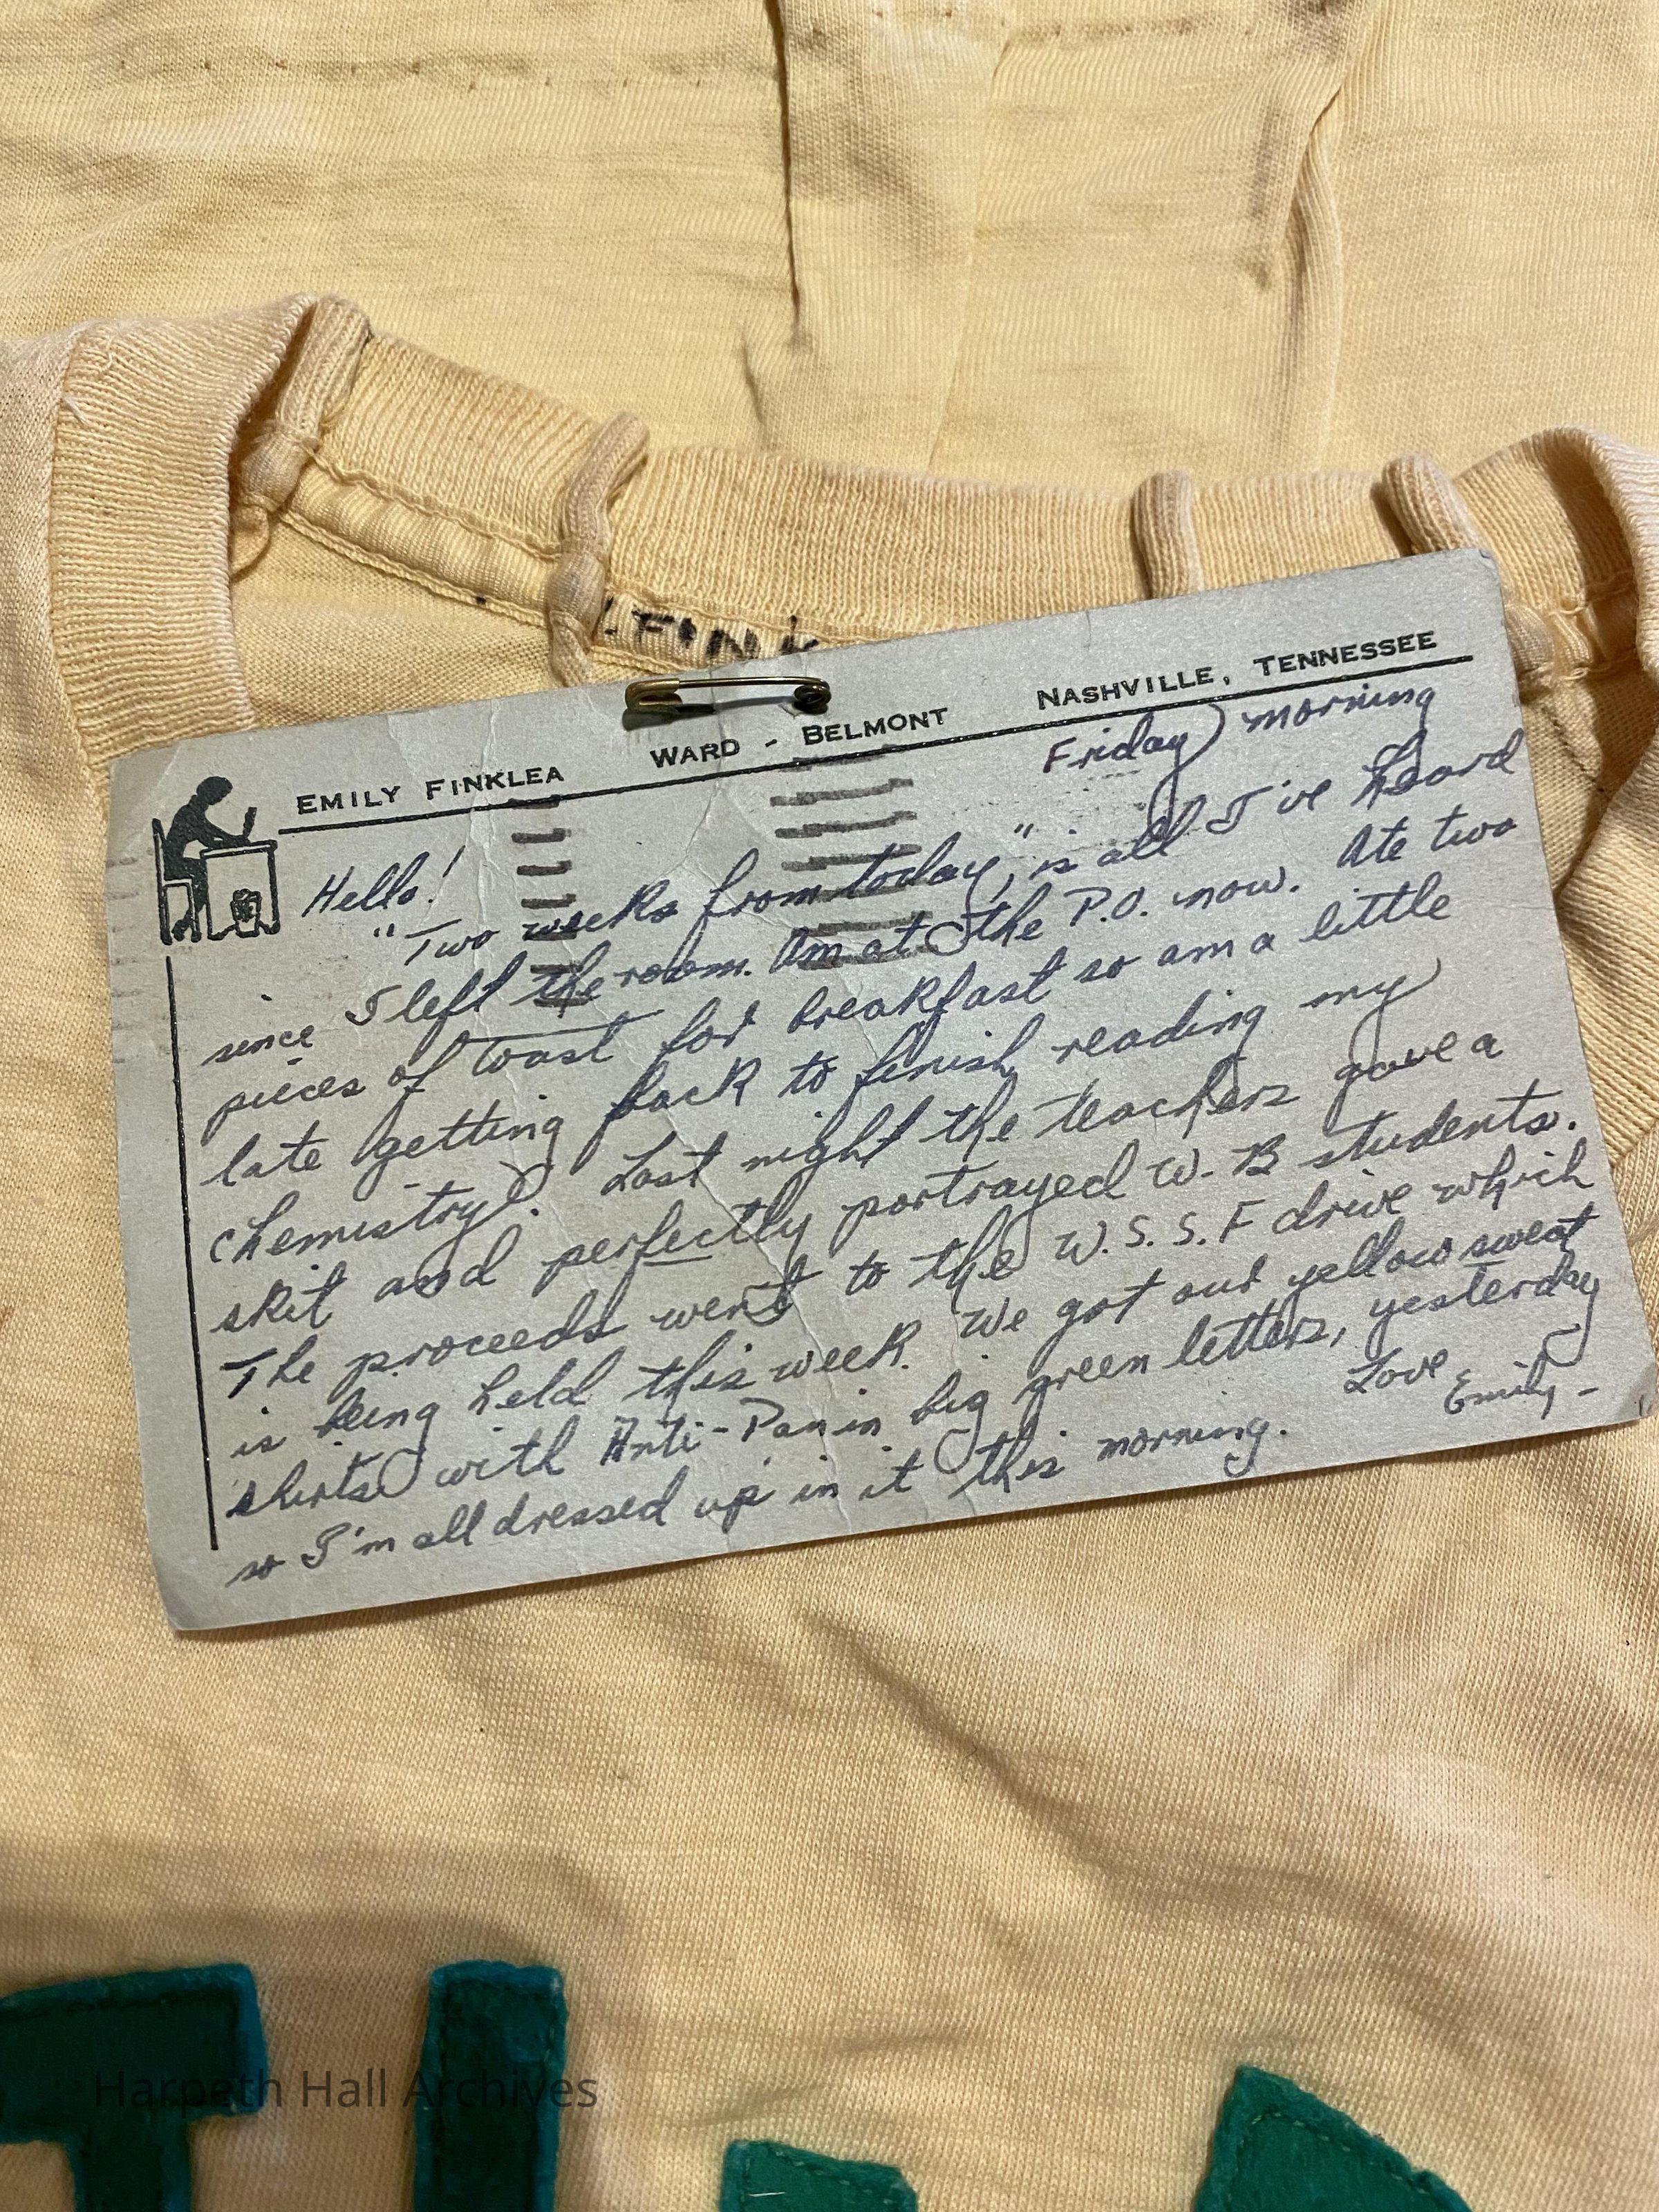 FINK
EMILY FINKLEA WARD - BELMONT NASHVILLE, TENNESSEE
Friday morning
Hello!
"Two weeks from today," is all I've heard
since I left the room. Am at the P.O. now. Ate two
pieces of toast for breakfast so am a little
late getting back to finish reading my
chemistry. Last night the teachers gave a
skit and perfectly portrayed W. B students.
The proceeds went to the W. S. S. F drive which
is being held this week. We got our yellow sweat
shirts with Anti-Pan in big green letters, yesterday
so I'm all dressed up in it this morning.
Love
Emily -
Harpeth Hall Archives